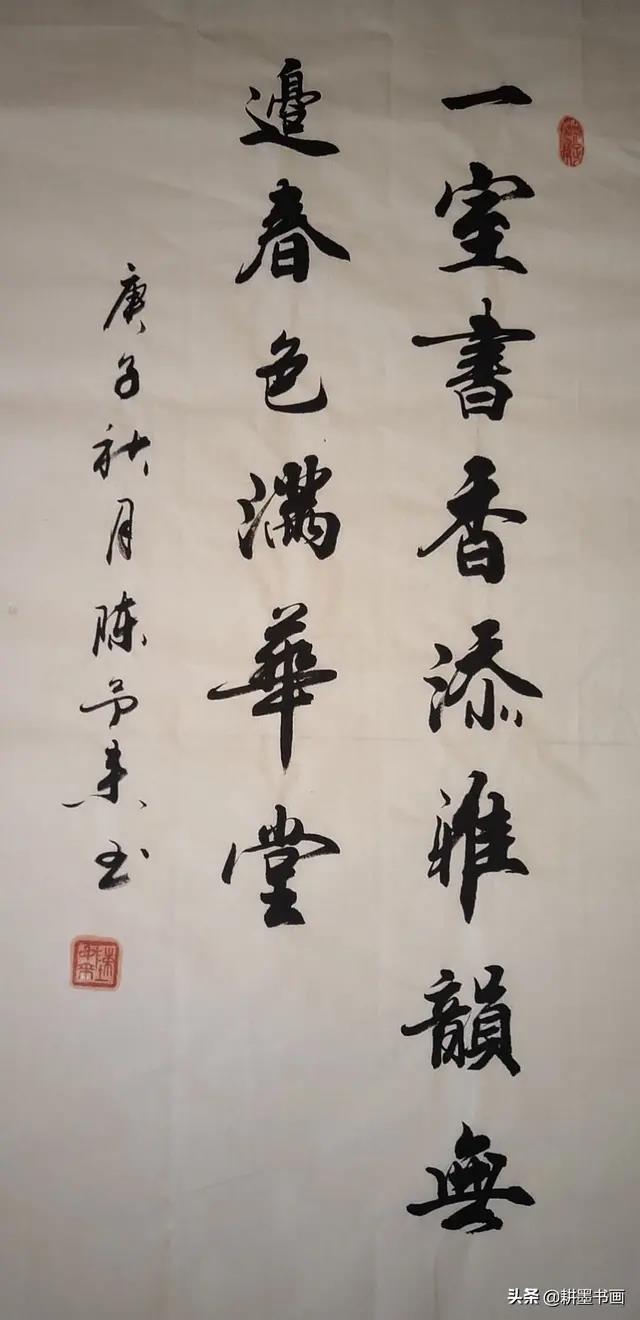 一室書香添雅韻無
邉春色滿華堂
庚子秋月陳
书
头条 @耕墨书画